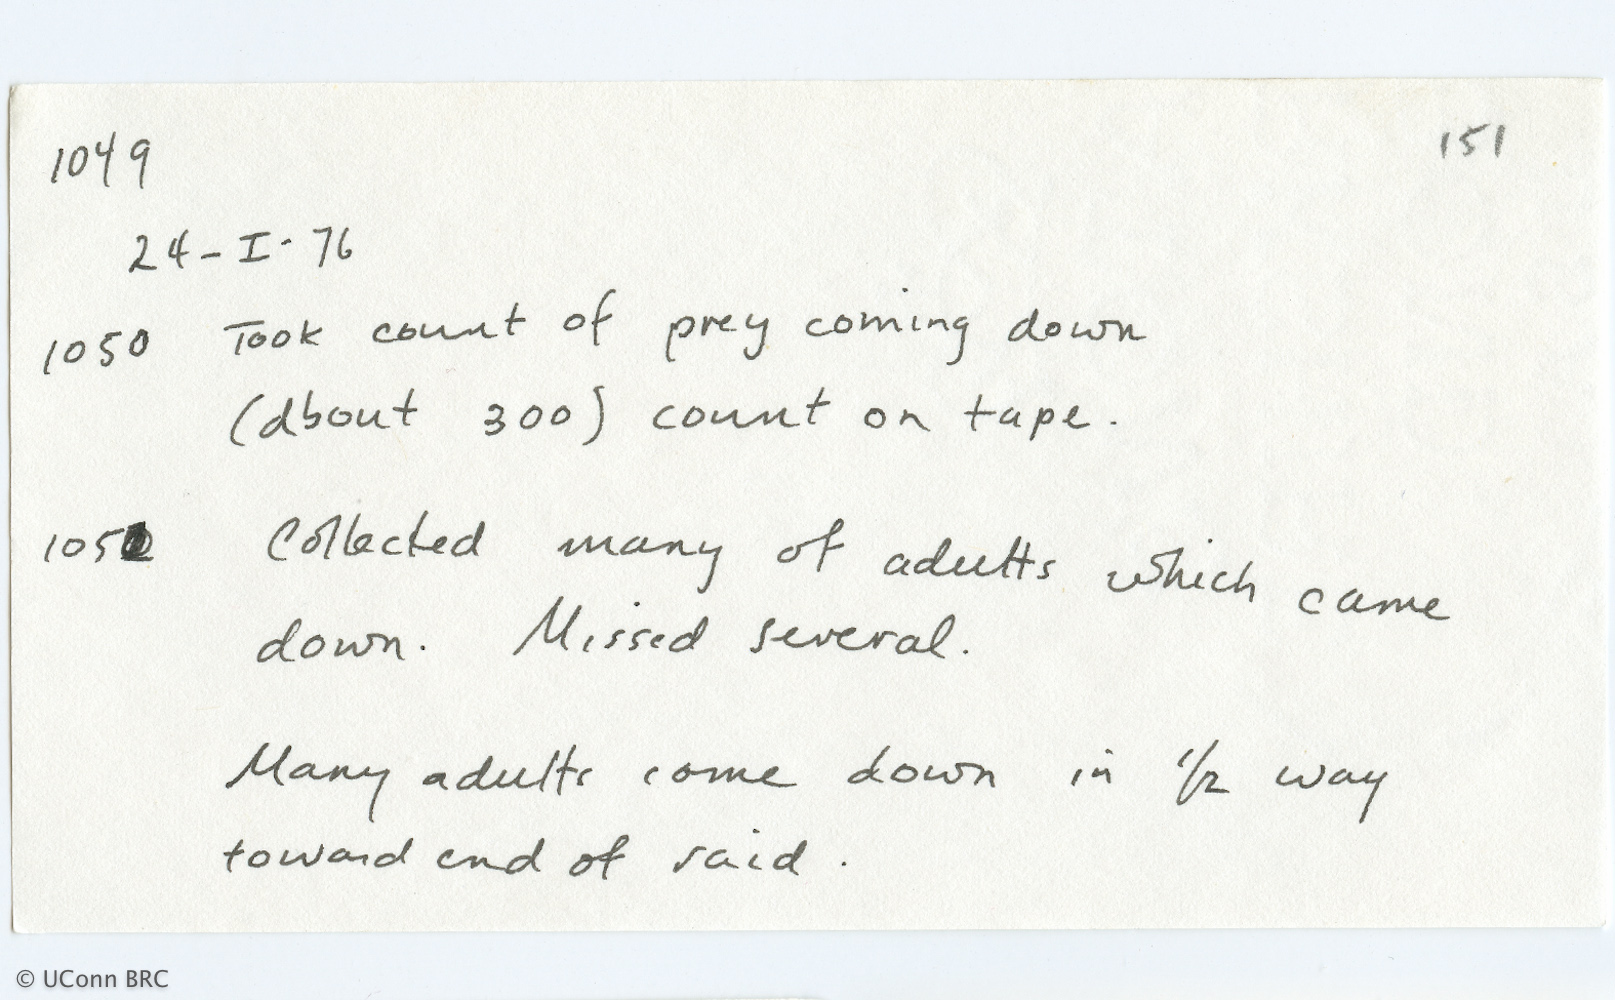 1049 151
24-I-76
1050 Took count of prey coming down
(about 300) count on tape.
1052 Collected many of adults which came
down. Missed several.
Many adults come down in 1/2 way
toward end of raid.
© UConn BRC